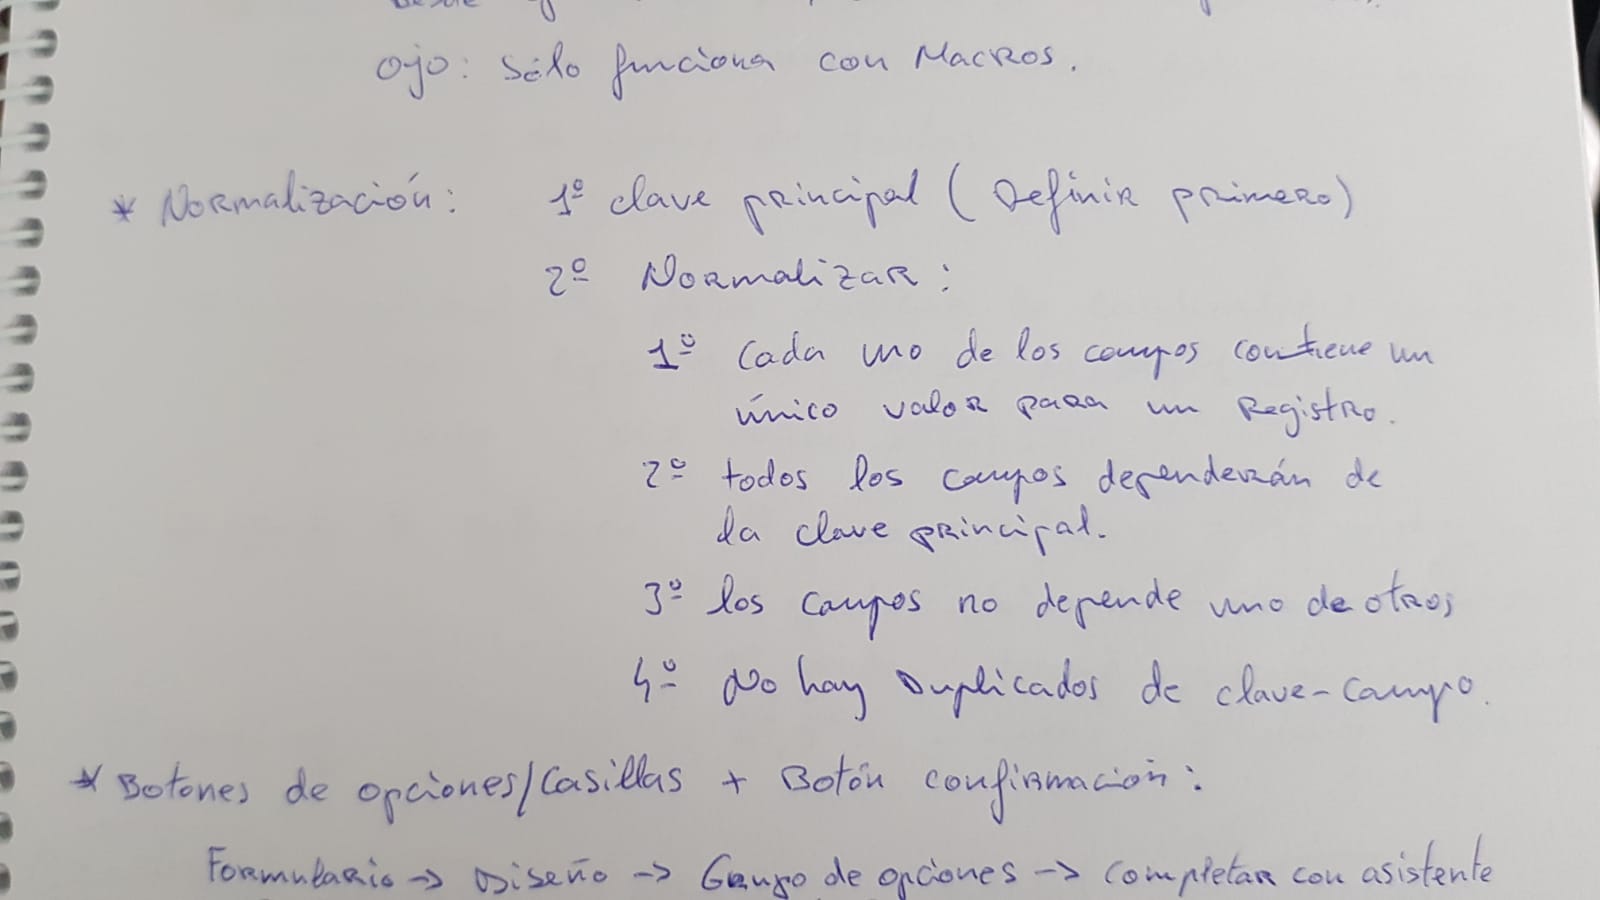 Desde
Ojo: Sólo funciona con Macros.
* Normalización: 1º clave principal (Definir primero)
2º Normalizar:
1º Cada uno de los campos contiene un
único valor para un Registro.
2º todos los campos dependerán de
la clave principal.
3º los campos no depende uno de otros
4º No hay Duplicados de clave-campo.
* Botones de opciones/Casillas + Botón confirmación:
Formulario -> Diseño -> Grupo de opciones -> Completar con asistente